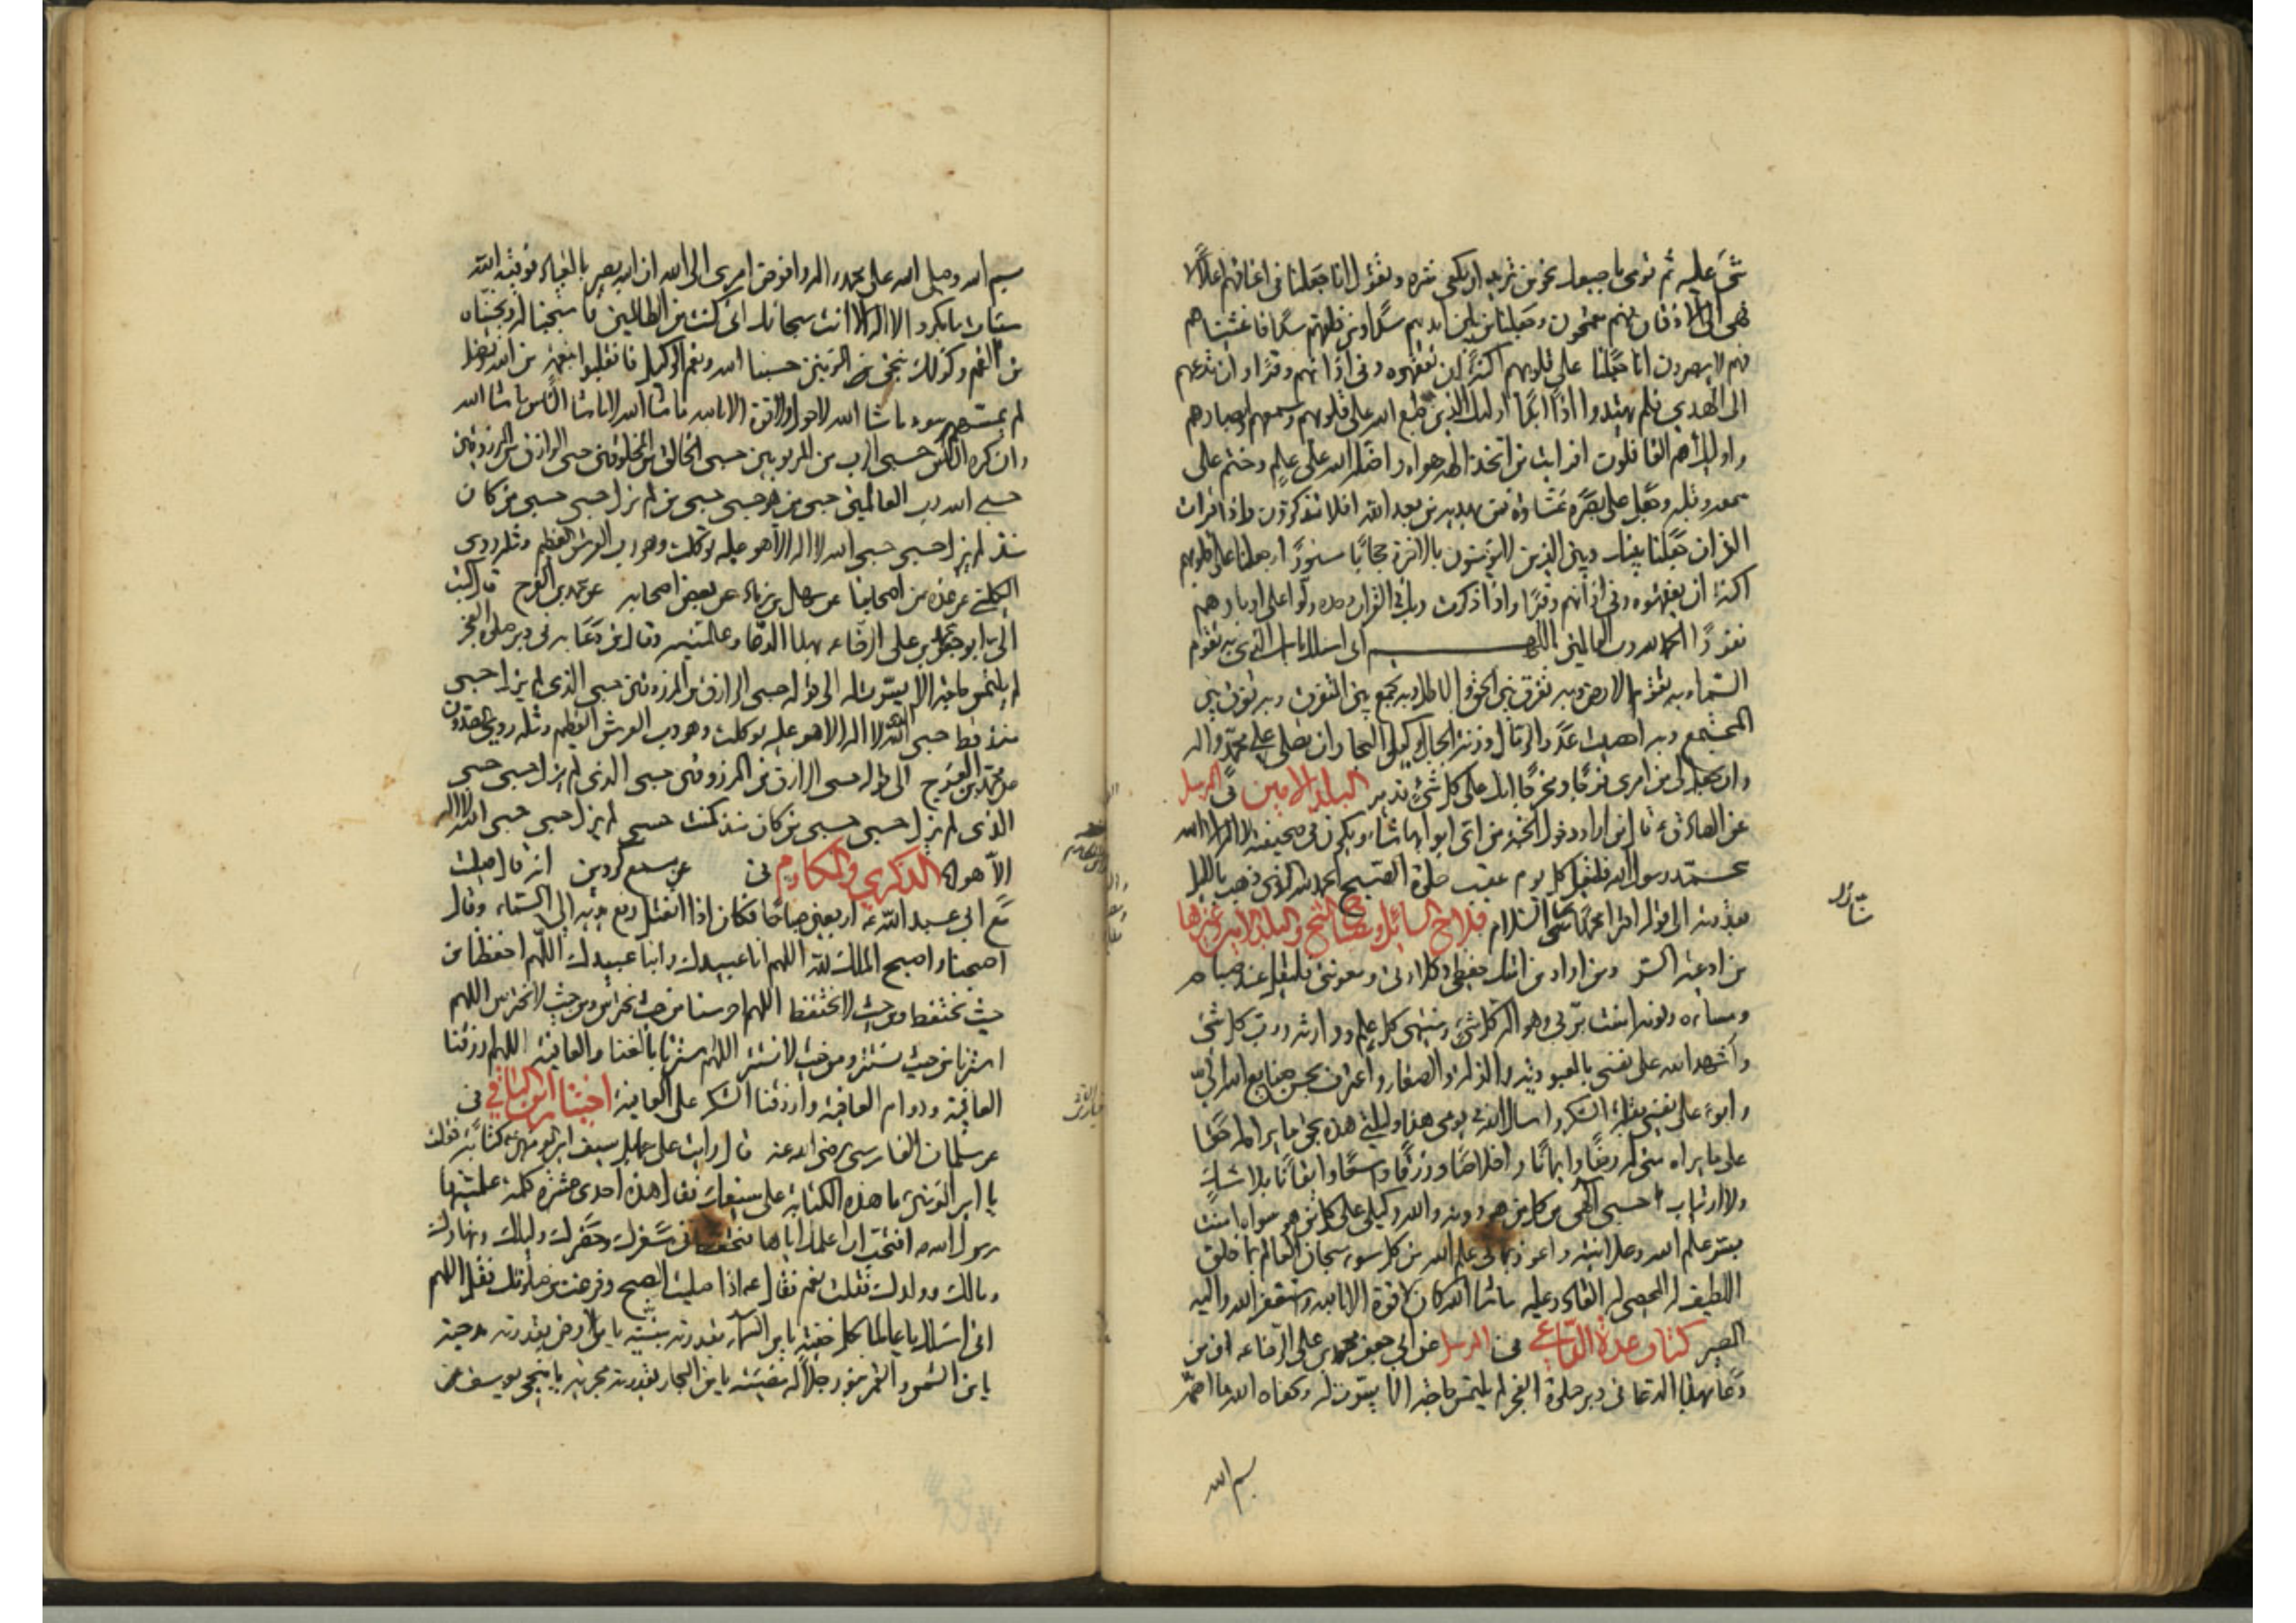 شئ عليه ثم تومى باصبعك نحو من تريد ان يكفى شره وتقول انا جعلنا فى اعناقهم اغلالا
فهى الى الاذقان فهم مقمحون وجعلنا من بين ايديهم سدا ومن خلفهم سدا فاغشيناهم
فهم لا يبصرون انا جعلنا على قلوبهم اكنة ان يفقهوه وفى اذانهم وقرا وان تدعهم
الى الهدى فلم يهتدوا اذا ابدا اولئك الذين طبع الله على قلوبهم وسمعهم وابصارهم
واولئك هم الغافلون افرايت من اتخذ الهه هواه واضله الله على علم وختم على
سمعه وقلبه وجعل على بصره غشاوة فمن يهديه من بعد الله افلا تذكرون واذا قرات
القران جعلنا بينك وبين الذين لا يؤمنون بالاخرة حجابا مستورا وجعلنا على قلوبهم
اكنة ان يفقهوه وفى اذانهم وقرا واذا ذكرت ربك فى القران وحده ولوا على ادبارهم
نفورا الحمد لله رب العالمين اللهم انى اسالك باسمك الذى به تقوم
السماء وبه تقوم الارض وبه تفرق بين الحق والباطل وبه تجمع بين المتفرق وبه تفرق بين
المجتمع وبه احصيت عدد الرمال وزنة الجبال وكيل البحار ان تصلى على محمد واله
وان تجعل لى من امرى فرجا ومخرجا انك على كل شئ قدير البلد الامين فى المرسل
عن الصادق ع قال من اراد دخول الجنة من اى ابوابها شاء ويكون فى صحيفته لا اله الا الله
محمد رسول الله فليقل كل يوم عقيب صلوة الصبح الحمد لله الذى ذهب بالليل
بقدرته الى قوله اقرا محمدا منى السلام فلاح السائل ومصباح الشيخ والبلد الامين وغيرها
من ادعية السر ومن اراد من امتك حفظى وكلاءتى ومعونتى فليقل عند صباحه
ومسائه ونومه امنت بربى وهو اله كل شئ ومنتهى كل علم ووارثه ورب كل شئ
واشهد الله على نفسى بالعبودية والذلة والصغار واعترف بحسن صنايع الله الى
وابوء على نفسى بقلة الشكر واسال الله فى يومى هذا وليلتى هذه بحق ما يراه له حقا
على ما يراه منى له رضا وايمانا واخلاصا ورزقا واسعا وايقانا بلا شك
ولا ارتياب حسبى الهى من كل من هو دونه والله وكيلى على كل من هو سواه امنت
بسر علم الله وعلانيته واعوذ بما فى علم الله من كل سوء سبحان العالم بما خلق
اللطيف له المحصى له القادر عليه ما شاء الله كان لا قوة الا بالله واستغفر الله واليه
المصير كتاب عدة الداعى فى المرسل عن ابى جعفر محمد بن على الرضا ع ان من
دعا بهذا الدعاء فى دبر صلوة الفجر لم يلتمس حاجة الا يسرت له وكفاه الله ما اهمه
بسم الله
بسم الله وصلى الله على محمد واله وافوض امرى الى الله ان الله بصير بالعباد فوقيه الله
سيئات ما مكروا لا اله الا انت سبحانك انى كنت من الظالمين فاستجبنا له ونجيناه
من الغم وكذلك ننجى المؤمنين حسبنا الله ونعم الوكيل فانقلبوا بنعمة من الله وفضل
لم يمسسهم سوء ما شاء الله لا حول ولا قوة الا بالله ما شاء الله لا ما شاء الناس ما شاء الله
وان كره الناس حسبى الرب من المربوبين حسبى الخالق من المخلوقين حسبى الرازق من المرزوقين
حسبى الله رب العالمين حسبى من هو حسبى حسبى من لم يزل حسبى حسبى من كان
منذ لم يزل حسبى حسبى الله لا اله الا هو عليه توكلت وهو رب العرش العظيم ومثله روى
الكلينى عن عدة من اصحابنا عن سهل بن زياد عن بعض اصحابه عن محمد بن الفرج قال كتب
الى ابو جعفر محمد بن على الرضا ع بهذا الدعاء وعلمنيه وقال من دعا به فى دبر صلوة الفجر
لم يلتمس حاجة الا يسرت له الى قوله حسبى الرازق من المرزوقين حسبى الذى لم يزل حسبى
منذ قط حسبى الله لا اله الا هو عليه توكلت وهو رب العرش العظيم ومثله روى الصدوق
عن محمد بن الفرج الى قوله حسبى الرازق من المرزوقين حسبى الذى لم يزل حسبى حسبى
الذى لم يزل حسبى حسبى من كان منذ كنت حسبى لم يزل حسبى حسبى الله لا اله
الا هو الذكرى والمكارم فى عن مسمع كردين انه قال صليت
مع ابى عبد الله ع اربعين صباحا فكان اذا انفتل رفع يديه الى السماء وقال
اصبحنا واصبح الملك لله اللهم انا عبيدك وابنا عبيدك اللهم احفظنا من
حيث نحتفظ ومن حيث لا نحتفظ اللهم احرسنا من حيث نحترس ومن حيث لا نحترس اللهم
استرنا من حيث نستتر ومن حيث لا نستتر اللهم استرنا بالغنا والعافية اللهم ارزقنا
العافية ودوام العافية وارزقنا الشكر على العافية اختيار ابن الباقى فى
عن سلمان الفارسى رضى الله عنه قال رايت على حمايل سيف امير المؤمنين ع كتابة فقلت
يا امير المؤمنين ما هذه الكتابة على سيفك فقال هذه احدى عشرة كلمة علمنيها
رسول الله ص افتحب ان اعلمك اياها فتحفظ فى سفرك وحضرك وليلك ونهارك
ومالك وولدك فقلت نعم فقال ع اذا صليت الصبح وفرغت من صلوتك فقل اللهم
انى اسالك يا عالما بكل خفية يا من السماء بقدرته مبنية يا من الارض بقدرته مدحية
يا من الشمس والقمر بنور جلاله مضيئة يا من البحار بقدرته مجرية يا منجى يوسف من